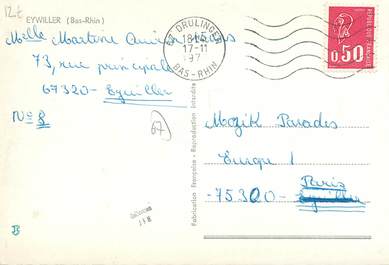 12€
EYWILLER (Bas-Rhin)
Melle Martine
73, rue principale
67320 - Eywiller
N° 8
67
67 DRULINGEN
18H45
17-11
197
BAS-RHIN
REPUBLIQUE FRANÇAISE
0,50
Fabrication Française - Reproduction Interdite
Mozik Parades
Europe 1
Paris
- 75320 -
118